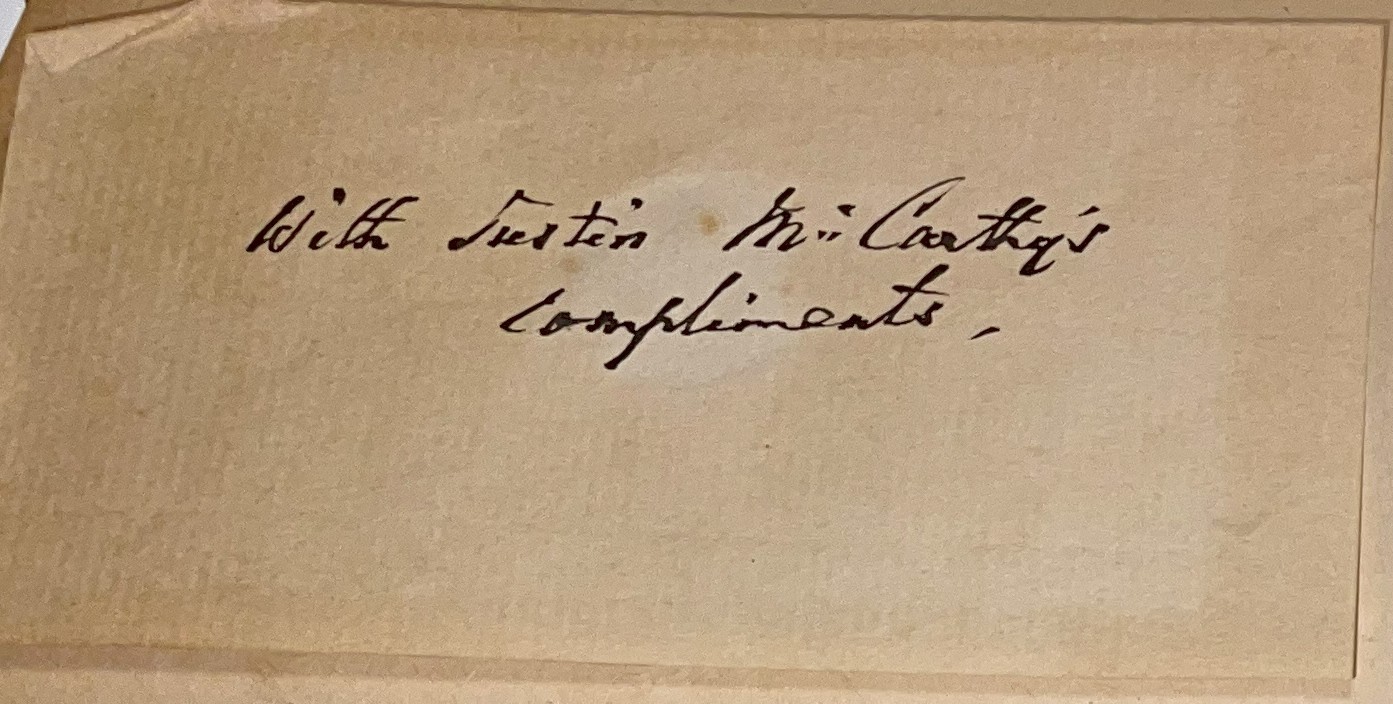 With Justin McCarthy's
compliments,